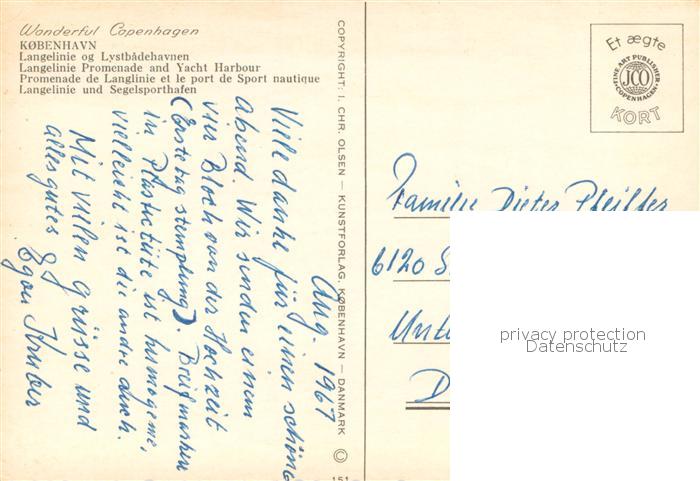 Wonderful Copenhagen
KØBENHAVN
Langelinie og Lystbådehavnen
Langelinie Promenade and Yacht Harbour
Promenade de Langlinie et le port de Sport nautique
Langelinie und Segelsporthafen
Aug. 1967
Viele danke für einen schöne
abend. Wir senden einem
vier Bloch von der Hochzeit
(Erste tag stemplung). Breifmarken
in Plastictüte ist
vielleicht ist die andre auch.
Mit vielen grüsse und
alles gutes
Egon
COPYRIGHT: I. CHR. OLSEN — KUNSTFORLAG, KØBENHAVN — DANMARK ©
151
Et ægte
FINE ART PUBLISHER
JCO
COPENHAGEN
KORT
Familie Dieter Pfeiffer
6120
Unte
D
privacy protection
Datenschutz